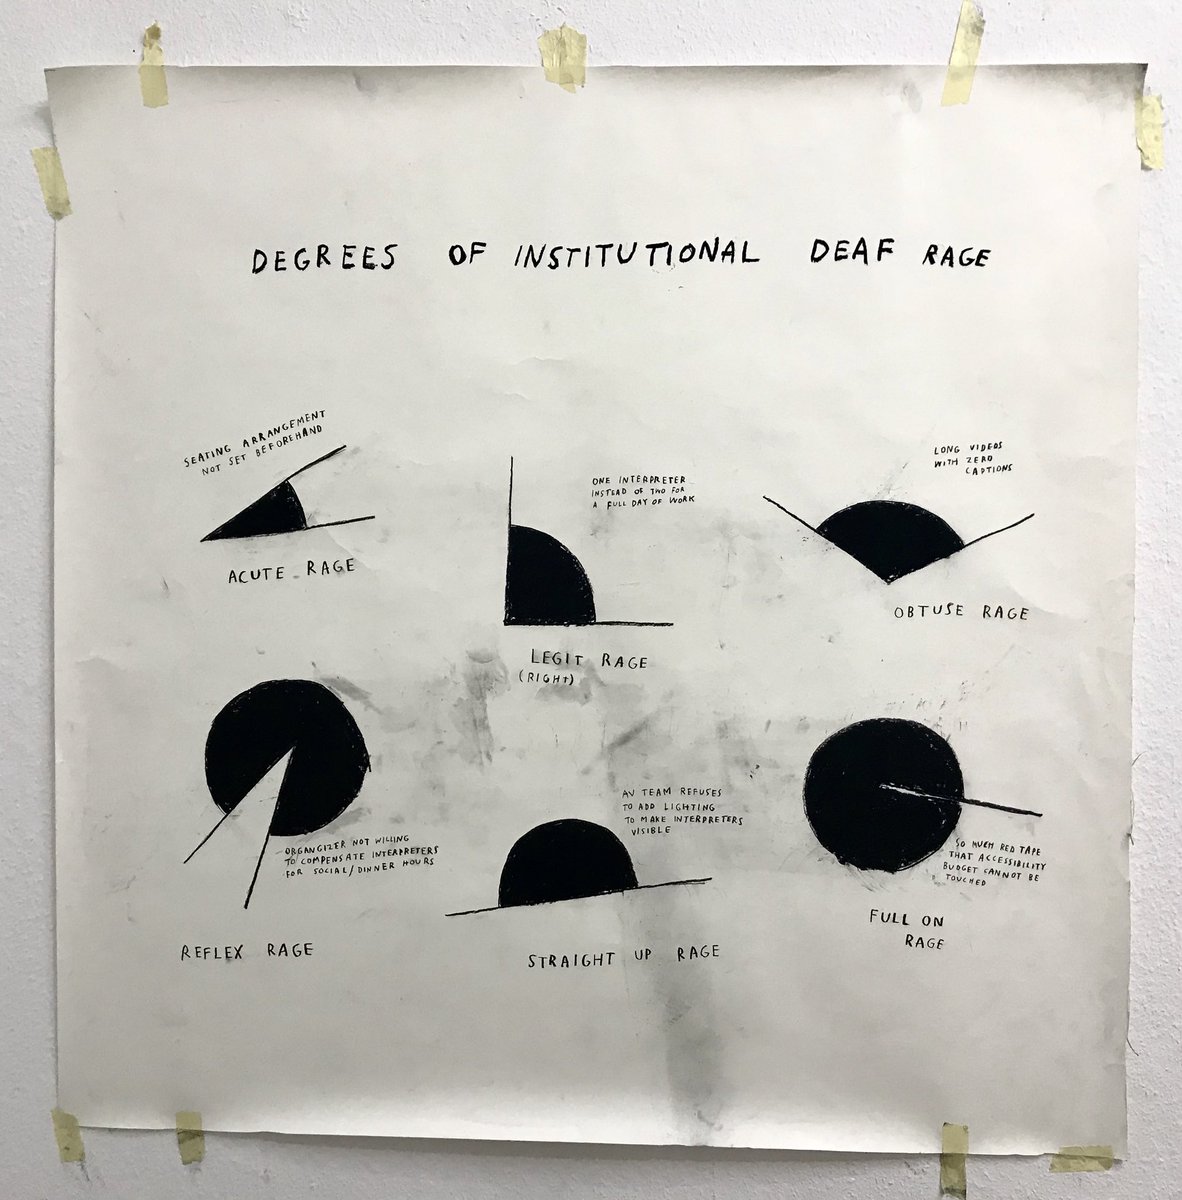 DEGREES OF INSTITUTIONAL DEAF RAGE
SEATING ARRANGEMENT
NOT SET BEFOREHAND
ACUTE RAGE
ONE INTERPRETER
INSTEAD OF TWO FOR
A FULL DAY OF WORK
LEGIT RAGE
(RIGHT)
LONG VIDEOS
WITH ZERO
CAPTIONS
OBTUSE RAGE
ORGANGIZER NOT WILLING
TO COMPENSATE INTERPRETERS
FOR SOCIAL/DINNER HOURS
REFLEX RAGE
AV TEAM REFUSES
TO ADD LIGHTING
TO MAKE INTERPRETERS
VISIBLE
STRAIGHT UP RAGE
SO MUCH RED TAPE
THAT ACCESSIBILITY
BUDGET CANNOT BE
TOUCHED
FULL ON
RAGE